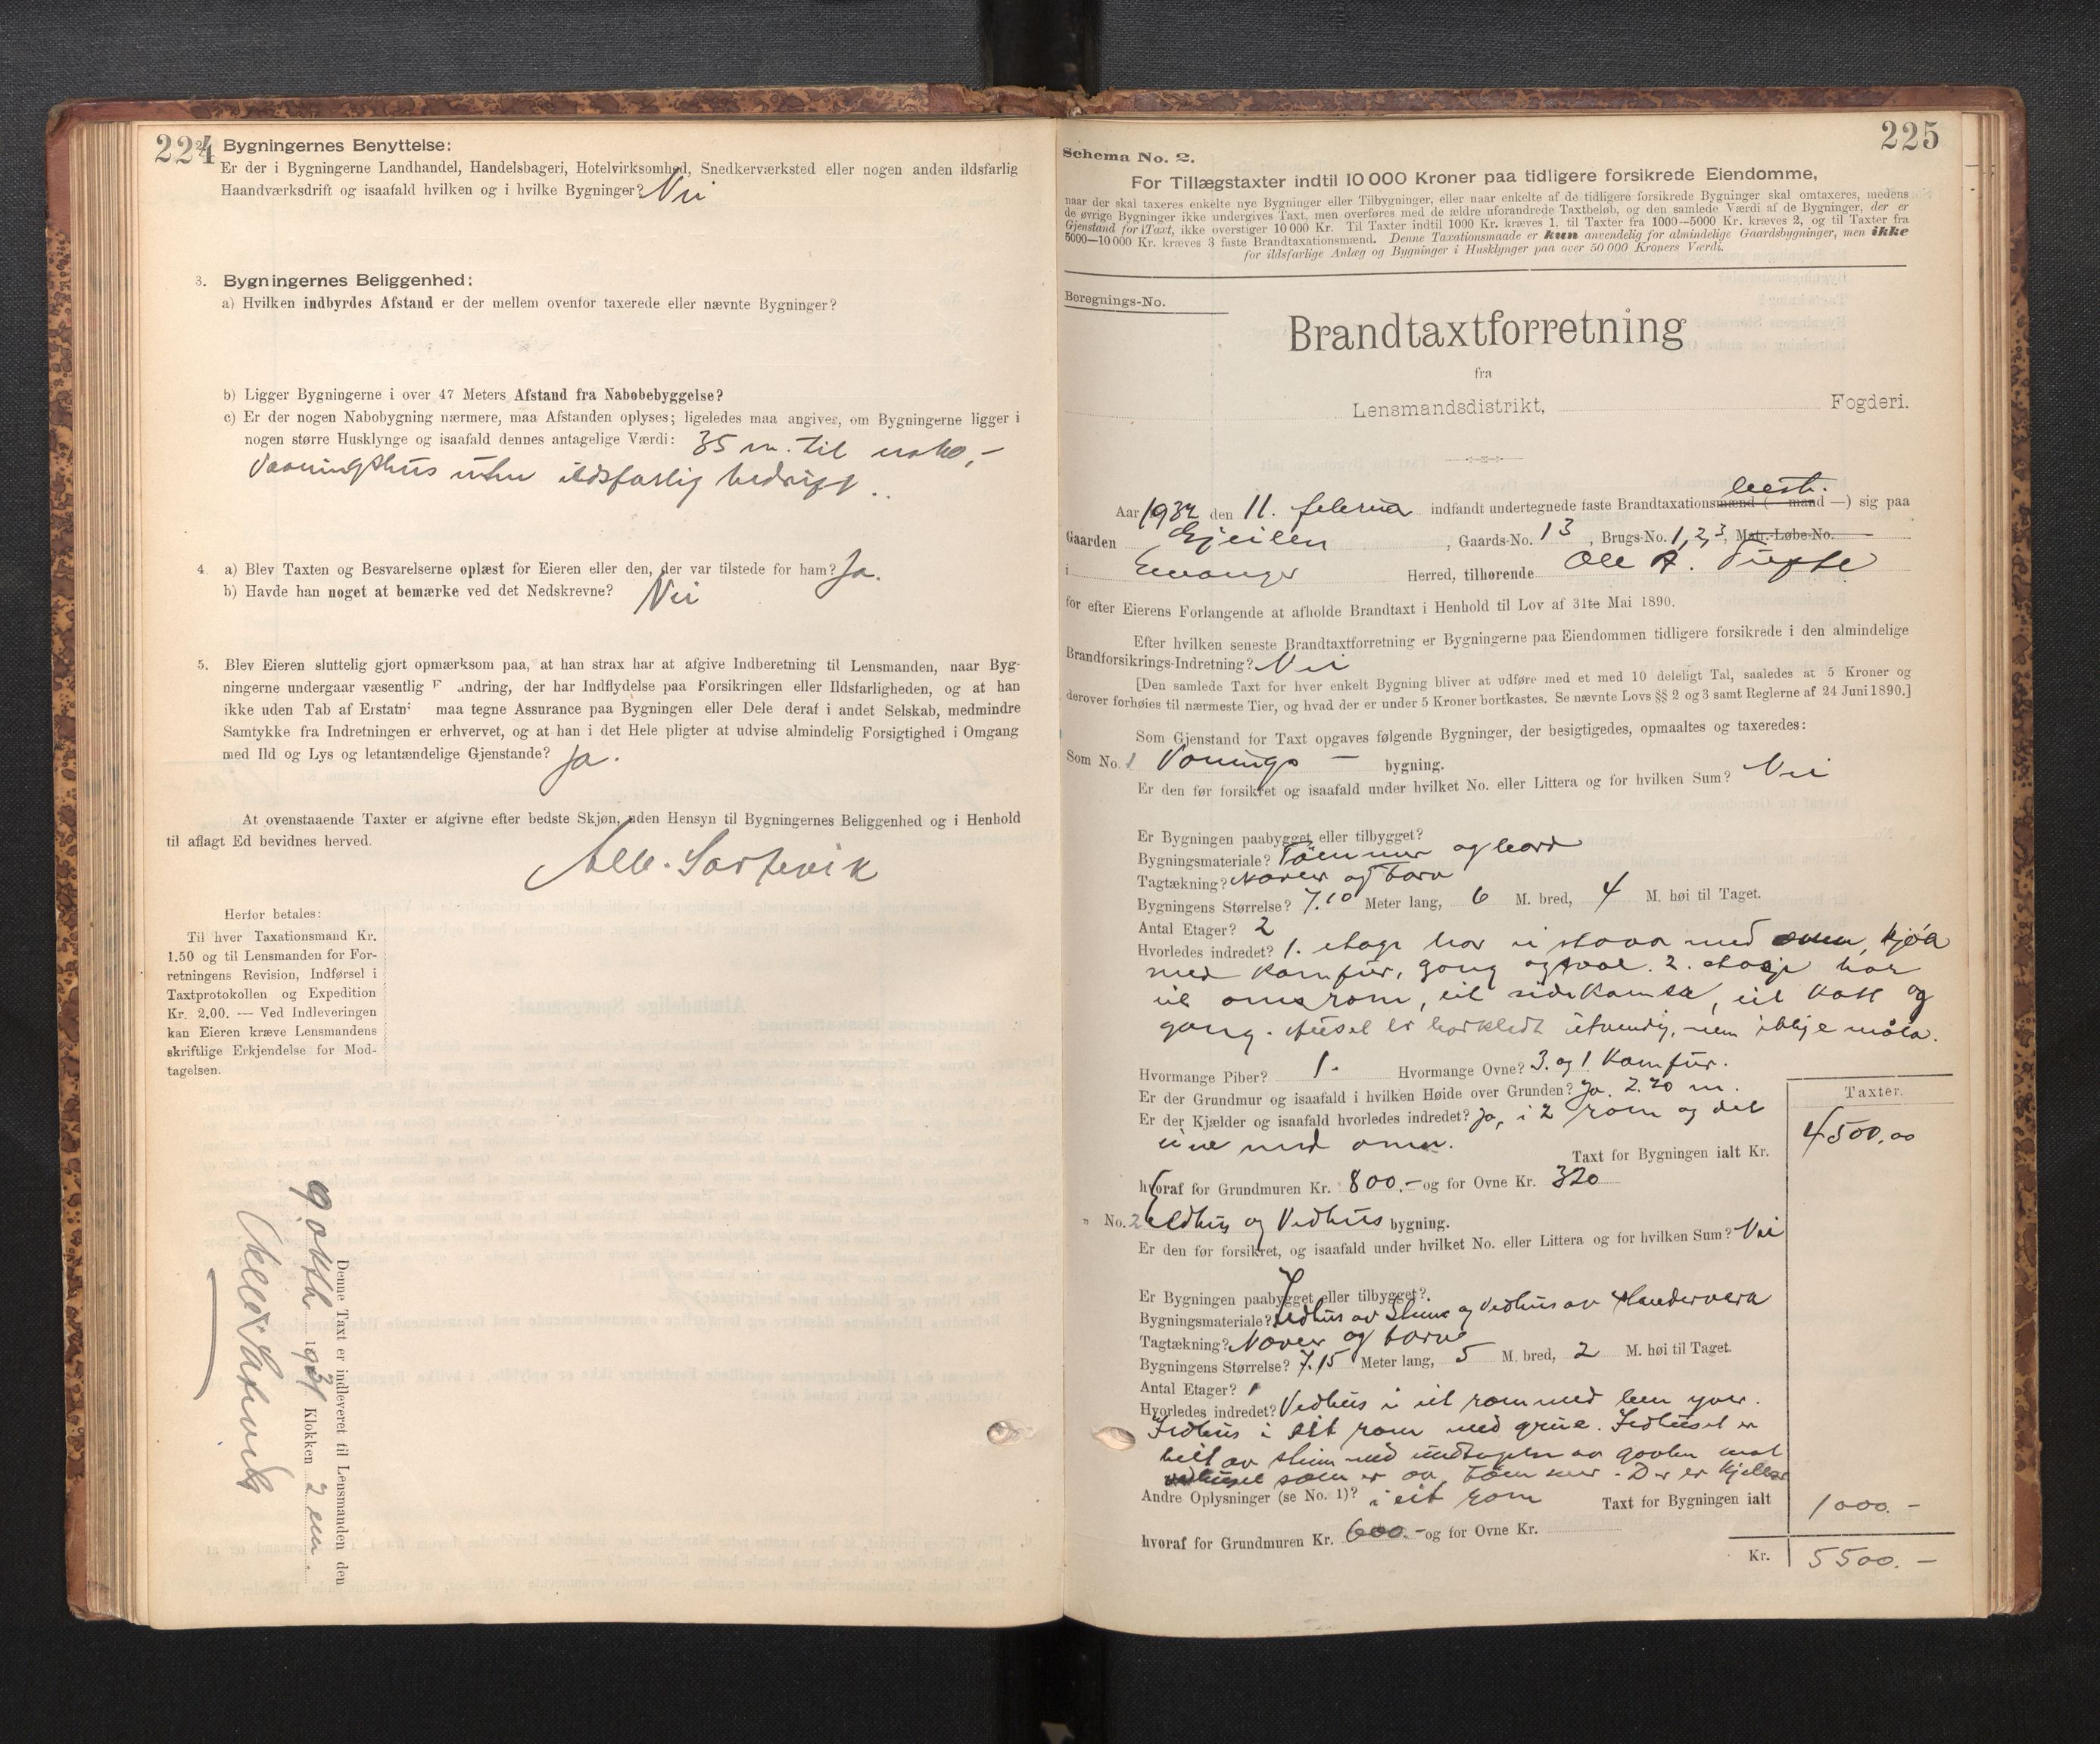 224
2. Bygningernes Benyttelse:
Er der i Bygningerne Landhandel, Handelsbageri, Hotelvirksomhed, Snedkerværksted eller nogen anden ildsfarlig
Haandværksdrift og isaafald hvilken og i hvilke Bygninger? Nei
3. Bygningernes Beliggenhed:
a) Hvilken indbyrdes Afstand er der mellem ovenfor taxerede eller nævnte Bygninger?
b) Ligger Bygningerne i over 47 Meters Afstand fra Nabobebyggelse?
c) Er der nogen Nabobygning nærmere, maa Afstanden oplyses; ligeledes maa angives, om Bygningerne ligger i
nogen større Husklynge og isaafald dennes antagelige Værdi: 35 m. til nabo,-
vaaningshus uten ildsfarlig bedrift..
4. a) Blev Taxten og Besvarelserne oplæst for Eieren eller den, der var tilstede for ham? Ja.
b) Havde han noget at bemærke ved det Nedskrevne? Nei
5. Blev Eieren sluttelig gjort opmærksom paa, at han strax har at afgive Indberetning til Lensmanden, naar Byg-
ningerne undergaar væsentlig F andring, der har Indflydelse paa Forsikringen eller Ildsfarligheden, og at han
ikke uden Tab af Erstatni maa tegne Assurance paa Bygningen eller Dele deraf i andet Selskab, medmindre
Samtykke fra Indretningen er erhvervet, og at han i det Hele pligter at udvise almindelig Forsigtighed i Omgang
med Ild og Lys og letantændelige Gjenstande? Ja.
At ovenstaaende Taxter er afgivne efter bedste Skjøn, uden Hensyn til Bygningernes Beliggenhed og i Henhold
til aflagt Ed bevidnes herved.
Herfor betales:
Til hver Taxationsmand Kr.
1.50 og til Lensmanden for For-
retningens Revision, Indførsel i
Taxtprotokollen og Expedition
Kr. 2.00. — Ved Indleveringen
kan Eieren kræve Lensmandens
skriftlige Erkjendelse for Mod-
tagelsen.
Denne Taxt er indleveret til Lensmanden den
9 oktbr 1931 Klokken 2 em.
225
Schema No. 2.
For Tillægstaxter indtil 10 000 Kroner paa tidligere forsikrede Eiendomme,
naar der skal taxeres enkelte nye Bygninger eller Tilbygninger, eller naar enkelte af de tidligere forsikrede Bygninger skal omtaxeres, medens
de øvrige Bygninger ikke undergives Taxt, men overføres med de ældre uforandrede Taxtbeløb, og den samlede Værdi af de Bygninger, der er
Gjenstand for Taxt, ikke overstiger 10 000 Kr. Til Taxter indtil 1000 Kr. kræves 1, til Taxter fra 1000—5000 Kr. kræves 2, og til Taxter fra
5000—10 000 Kr. kræves 3 faste Brandtaxationsmænd. Denne Taxationsmaade er kun anvendelig for almindelige Gaardsbygninger, men ikke
for ildsfarlige Anlæg og Bygninger i Husklynger paa over 50 000 Kroners Værdi.
Beregnings-No.
Brandtaxtforretning
fra
Lensmandsdistrikt, Fogderi.
Aar 1932 den 11. februar indfandt undertegnede faste Brandtaxationsmænd (— mand —) sig paa
Gaarden , Gaards-No. 13, Brugs-No. 1,2,3, Matr.-Løbe-No.
i Evanger Herred, tilhørende Ole A. Tufte
for efter Eierens Forlangende at afholde Brandtaxt i Henhold til Lov af 31te Mai 1890.
Efter hvilken seneste Brandtaxtforretning er Bygningerne paa Eiendommen tidligere forsikrede i den almindelige
Brandforsikrings-Indretning? Nei
[Den samlede Taxt for hver enkelt Bygning bliver at udføre med et med 10 deleligt Tal, saaledes at 5 Kroner og
derover forhøies til nærmeste Tier, og hvad der er under 5 Kroner bortkastes. Se nævnte Lovs §§ 2 og 3 samt Reglerne af 24 Juni 1890.]
Som Gjenstand for Taxt opgaves følgende Bygninger, der besigtigedes, opmaaltes og taxeredes:
Som No. 1 Vonings - bygning.
Er den før forsikret og isaafald under hvilket No. eller Littera og for hvilken Sum? Nei
Er Bygningen paabygget eller tilbygget?
Bygningsmateriale? Tømmer og bord
Tagtækning? Never og torv
Bygningens Størrelse? 7.10 Meter lang, 6 M. bred, 4 M. høi til Taget.
Antal Etager? 2
Hvorledes indredet? 1. etage har ei stova med omn, kjøk
med komfur, gong og sval. 2. etasje har
eit omsrom, eit sidekamer, eit kott og
gong. Huset er bordkledt utvendig, men ikkje måla.
Hvormange Piber? 1. Hvormange Ovne? 3. og 1 komfur.
Er der Grundmur og isaafald i hvilken Høide over Grunden? Ja. 2.20 m.
Er der Kjælder og isaafald hvorledes indredet? Ja, i 2 rom og det
eine med omn.
Taxt for Bygningen ialt Kr.
Taxter.
4500.00
hvoraf for Grundmuren Kr. 800.- og for Ovne Kr. 320
" No. 2 Eldhus og Vedhus bygning.
Er den før forsikret, og isaafald under hvilket No. eller Littera og for hvilken Sum? Nei
Er Bygningen paabygget eller tilbygget?
Bygningsmateriale? Eldhus av Stein og Vedhus av
Tagtækning? Never og torv
Bygningens Størrelse? 7.15 Meter lang, 5 M. bred, 2 M. høi til Taget.
Antal Etager? 1
Hvorledes indredet? Vedhus i eit rom med lem yver.
Eldhus i eit rom med grue. Eldhuset er
heit av stein med undtagelse av gavlen mot
vedhuset som er av tømmer. Der er kjellar
Andre Oplysninger (se No. 1)? i eit rom Taxt for Bygningen ialt 1000.-
hvoraf for Grundmuren Kr. 600.- og for Ovne Kr.
Kr. 5500.-